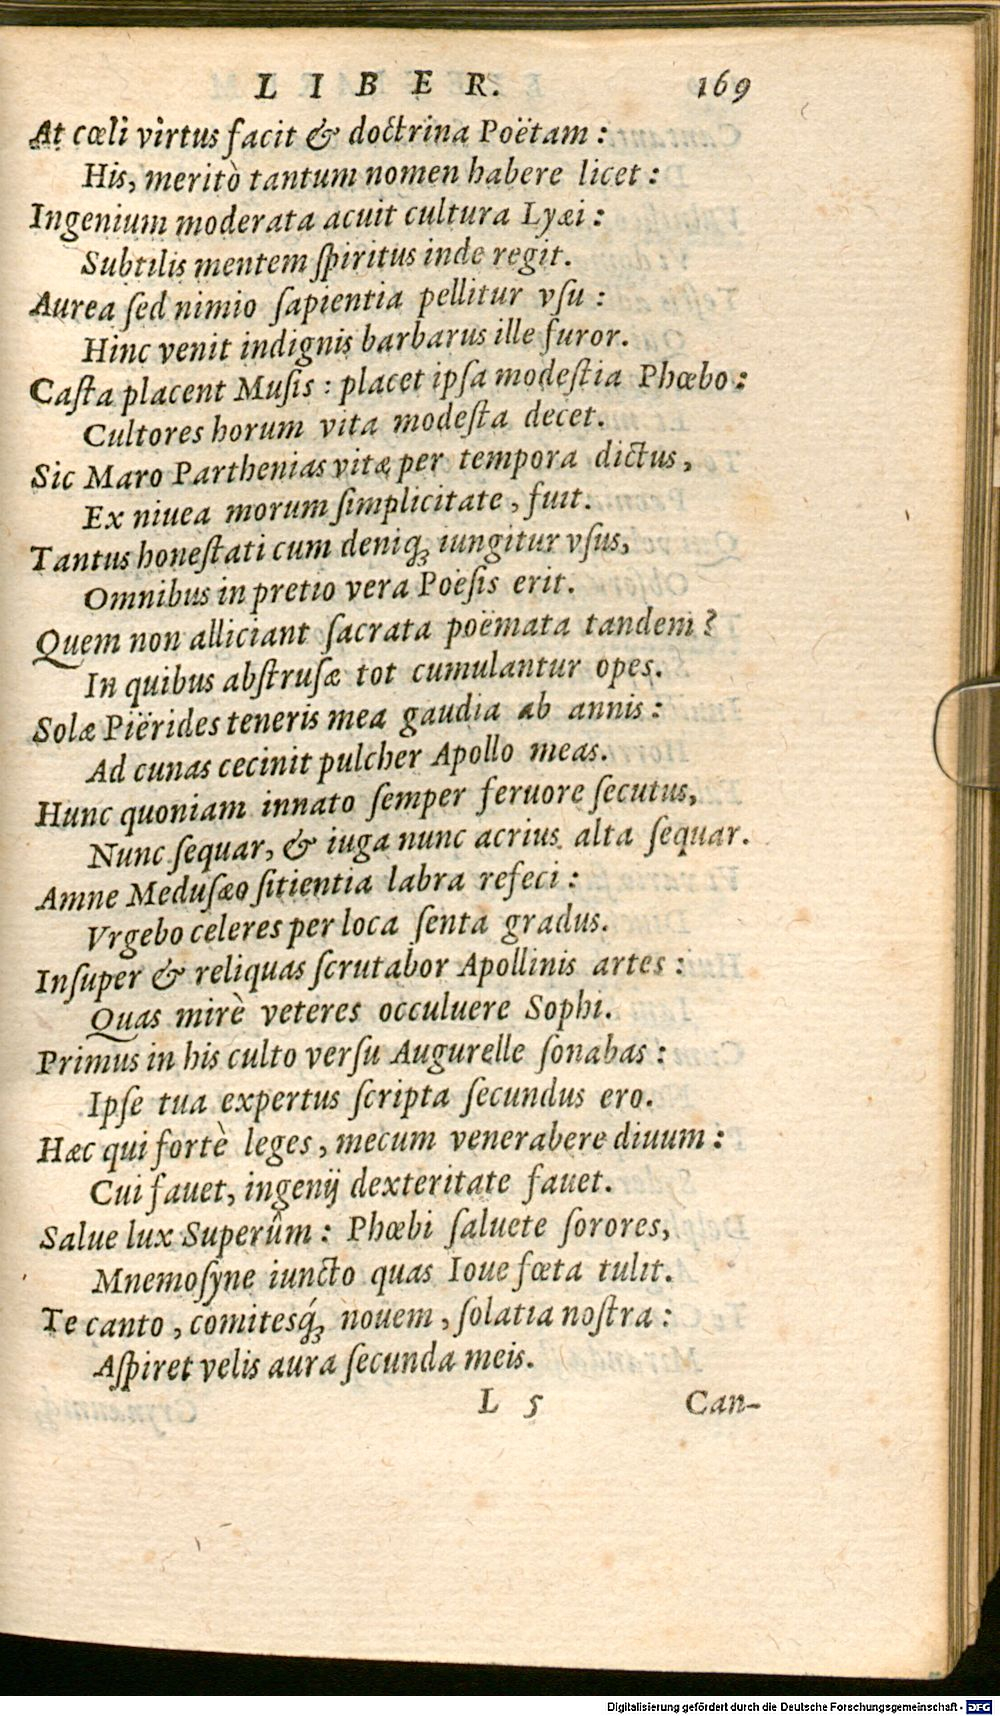 LIBER. 169
At cœli virtus facit & doctrina Poëtam:
His, meritò tantum nomen habere licet:
Ingenium moderata acuit cultura Lyæi:
Subtilis mentem ſpiritus inde regit.
Aurea ſed nimio ſapientia pellitur vſu:
Hinc venit indignis barbarus ille furor.
Caſta placent Muſis: placet ipſa modeſtia Phœbo:
Cultores horum vita modeſta decet.
Sic Maro Parthenias vitæ per tempora dictus,
Ex niuea morum ſimplicitate, fuit.
Tantus honeſtati cum deniqꝫ iungitur vſus,
Omnibus in pretio vera Poëſis erit.
Quem non alliciant ſacrata poëmata tandem?
In quibus abſtruſæ tot cumulantur opes.
Solæ Piërides teneris mea gaudia ab annis:
Ad cunas cecinit pulcher Apollo meas.
Hunc quoniam innato ſemper feruore ſecutus,
Nunc ſequar, & iuga nunc acrius alta ſequar.
Amne Meduſæo ſitientia labra refeci:
Vrgebo celeres per loca ſenta gradus.
Inſuper & reliquas ſcrutabor Apollinis artes:
Quas mirè veteres occuluere Sophi.
Primus in his culto verſu Augurelle ſonabas:
Ipſe tua expertus ſcripta ſecundus ero.
Hæc qui fortè leges, mecum venerabere diuum:
Cui fauet, ingenij dexteritate fauet.
Salue lux Superûm: Phœbi ſaluete ſorores,
Mnemoſyne iuncto quas Ioue fœta tulit.
Te canto, comitesq́ꝫ nouem, ſolatia noſtra:
Aſpiret velis aura ſecunda meis.
L 5 Can-
Digitalisierung gefördert durch die Deutsche Forschungsgemeinschaft - DFG